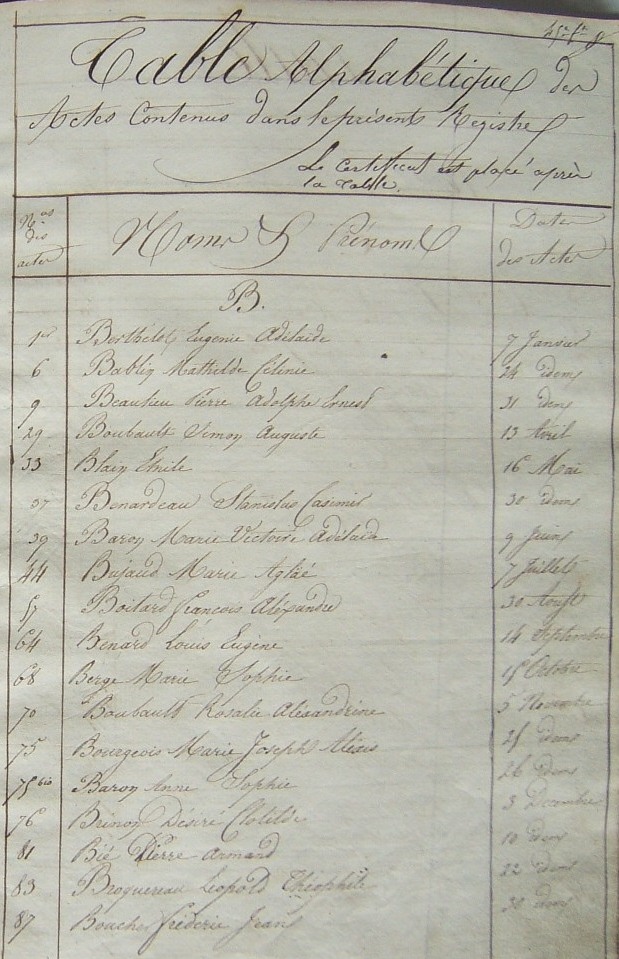 Table Alphabétique des
Actes Contenus dans le présent Registre
Le Certificat est placé après
la Table.
Nos des actes Noms & Prénoms Dates des Actes
B.
1er Berthelot Eugenie Adélaide 7 Janvier
6 Bablin Mathilde Célinie 24 idem
9 Beaulieu Pierre Adolphe Ernest 31 idem
29 Boubault Simon Auguste 13 Avril
33 Blain Emile 16 Mai
37 Benardeau Stanislas Casimir 30 idem
39 Baron Marie Victoire Adélaide 9 Juin
44 Bujaud Marie Aglaé 7 Juillet
57 Boitard françois Aléxandre 30 Aoust
64 Benard Louis Eugène 14 Septembre
68 Bérge Marie Sophie 15 Octobre
70 Boubault Rosalie Aléxandrine 5 Novembre
75 Bourgeois Marie Joseph Aléxis 25 idem
75 bis Baron Anne Sophie 26 idem
76 Brinon Désiré Clotilde 3 Décembre
81 Bié Pierre Armand 10 idem
83 Broquereau Léopold Théophile 22 idem
87 Boucher fréderic Jean 30 idem